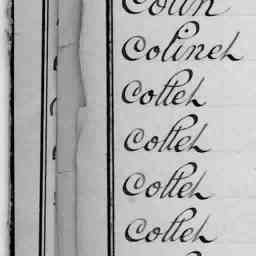 Colin
Colinet
Collet
Collet
Collet
Collet